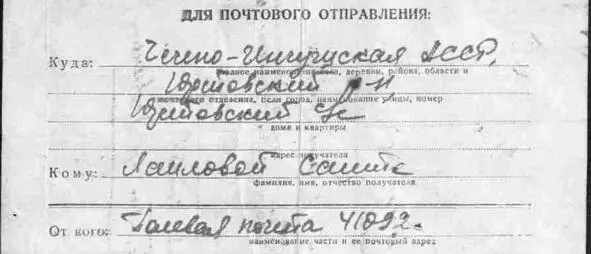 ДЛЯ ПОЧТОВОГО ОТПРАВЛЕНИЯ:
Куда: Чечено-Ингушская АССР,
полное наименование села, деревни, района, области и
р-н
почтового отделения. Если город, наименование улицы, номер
с/с
дома и квартиры
адрес получателя
Кому:
фамилия, имя, отчество получателя
От кого: Полевая почта 41092.
наименование части и ее почтовый адрес